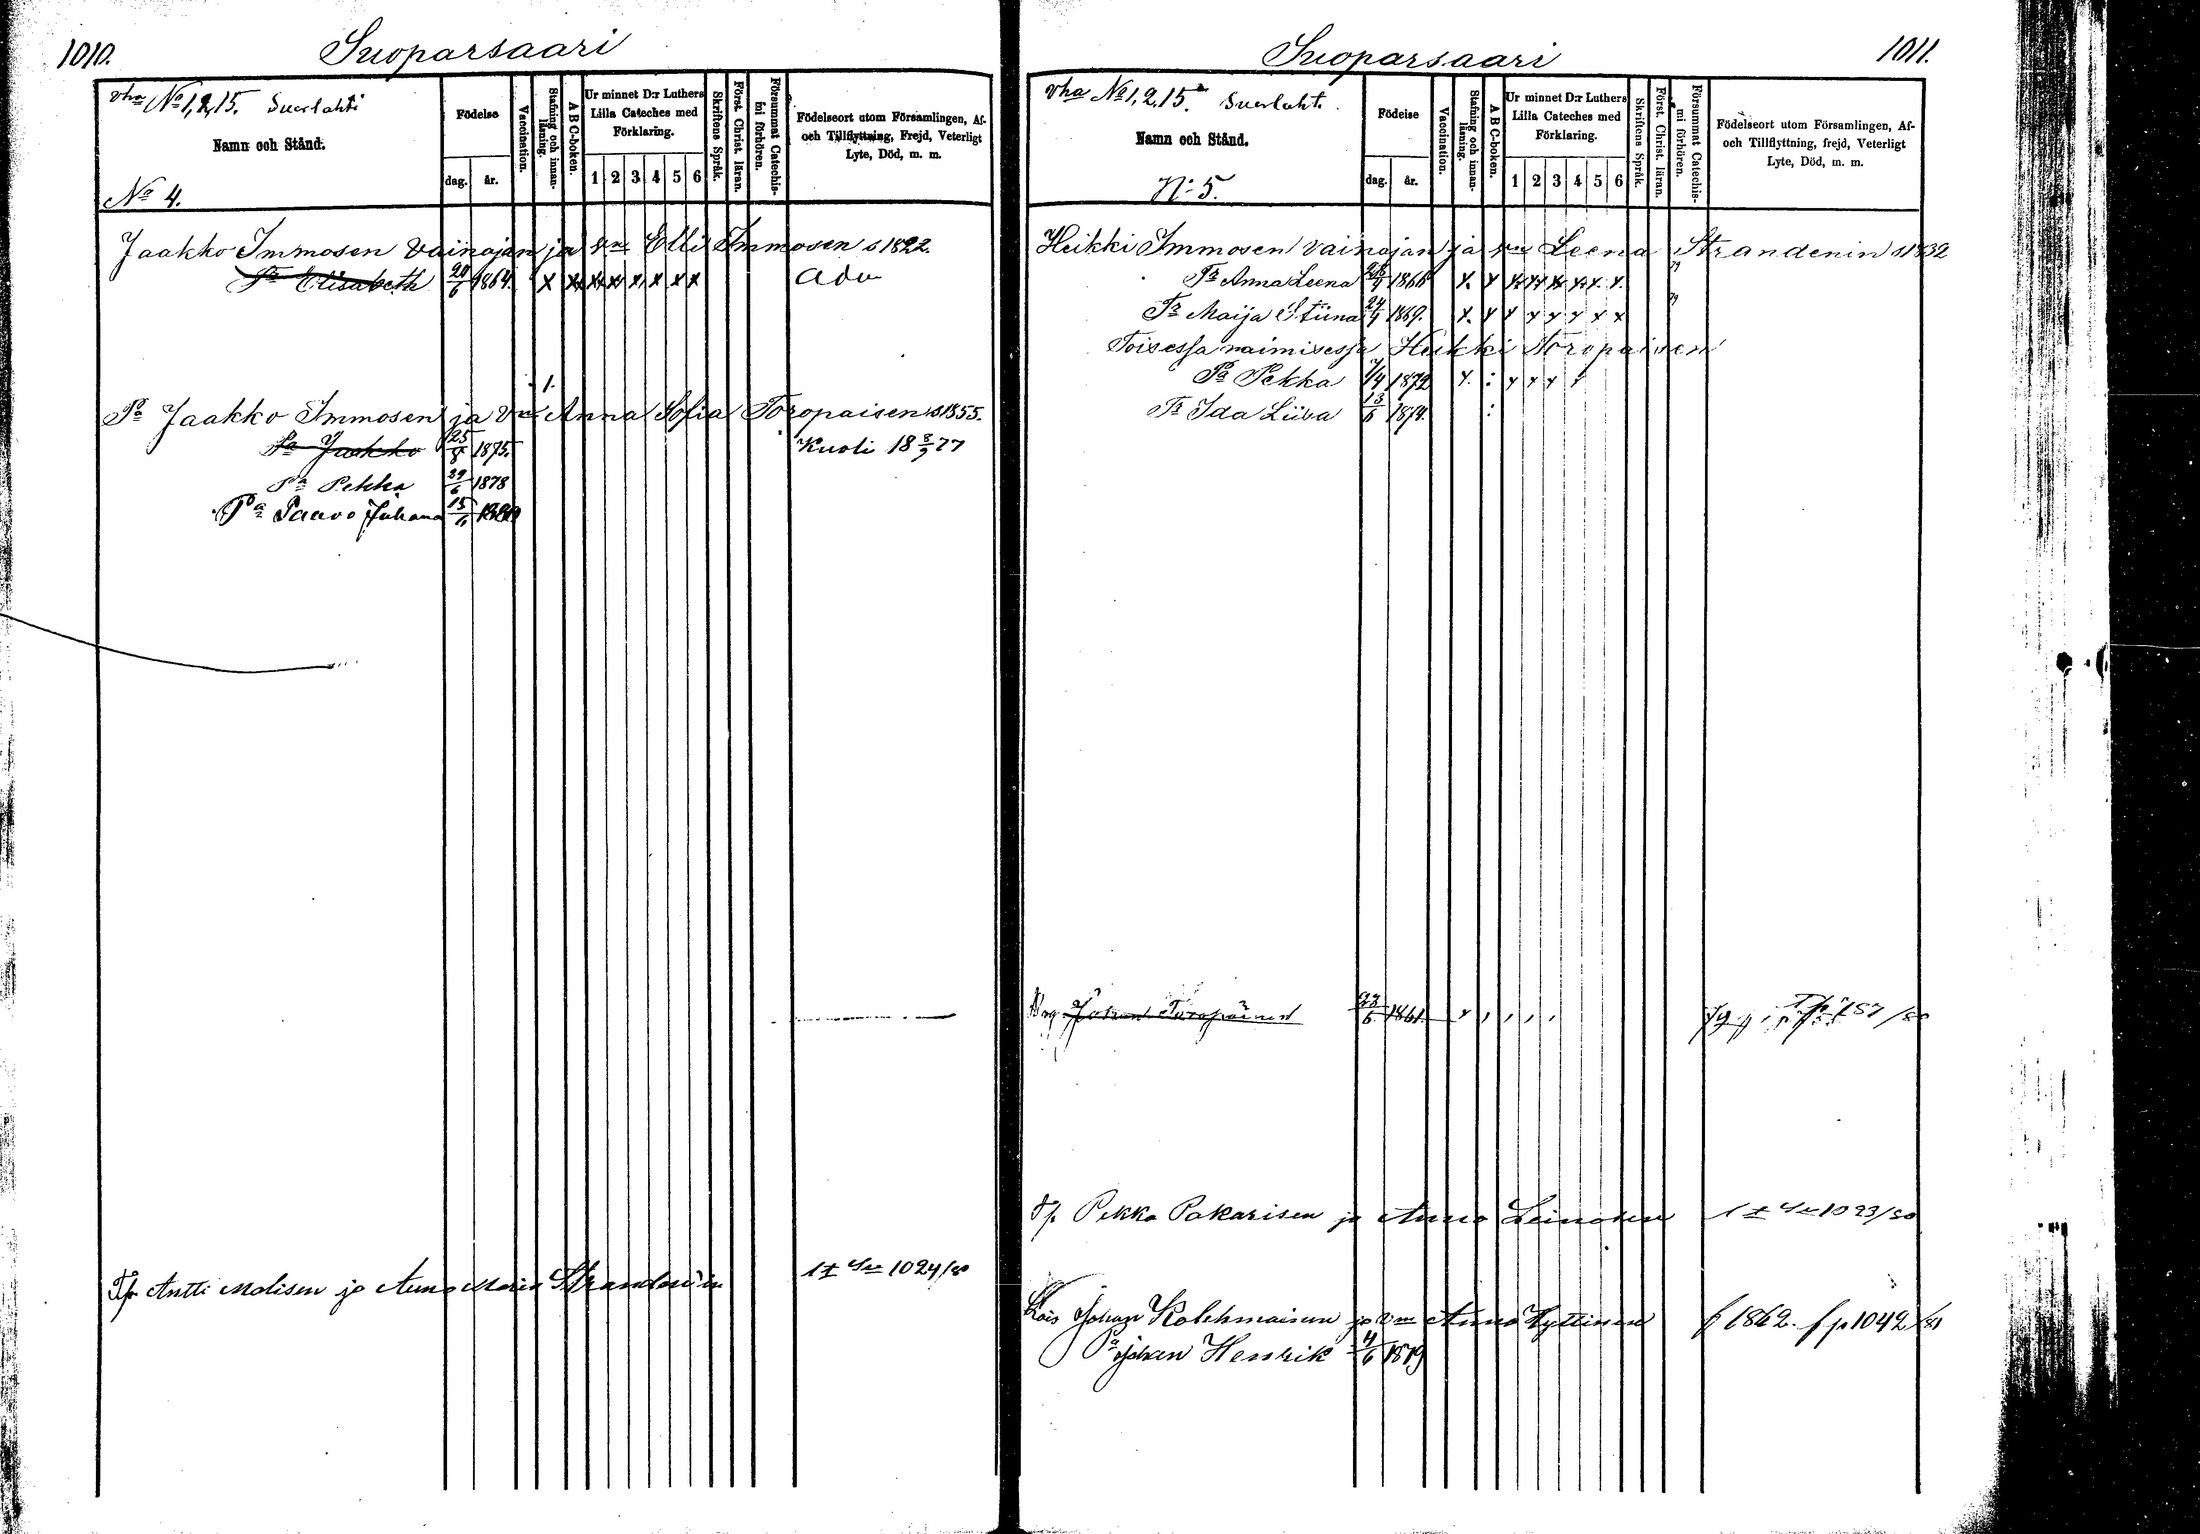 1010.
Suoparsaari
vha No 1, 2, 15. Suerlahti
Namn och Stånd.
No 4.
Födelse
dag. år.
Vaccination.
Stafning och innanläsning.
A B C-boken.
Ur minnet D:r Luthers Lilla Cateches med Förklaring.
1 2 3 4 5 6
Skriftens Språk.
Först. Christ. läran.
Försummat Catechismi förhören.
Födelseort utom Församlingen, Af- och Tillflyttning, Frejd, Veterligt Lyte, Död, m. m.
Jaakko Immosen vainajan ja vmo Elli Immosen s 1822.
Tr Elisabeth 20/6 1864. x x x x x x x x
1.
Pa Jaakko Immosen ja Vmo Anna Sofia Toropaisen s 1855.
Pa Jaakko 25/8 1875. Kuoli 18 3/9 77
Pa Pekka 29/6 1878
Pa Paavo Juhana 15/6
Antti Molisen ja Anna Maria 1024/80
1011.
Suoparsaari
vha No 1, 2, 15. Suerlahti
Namn och Stånd.
N:o 5.
Födelse
dag. år.
Vaccination.
Stafning och innanläsning.
A B C-boken.
Ur minnet D:r Luthers Lilla Cateches med Förklaring.
1 2 3 4 5 6
Skriftens Språk.
Först. Christ. läran.
Försummat Catechismi förhören.
Födelseort utom Församlingen, Af- och Tillflyttning, frejd, Veterligt Lyte, Död, m. m.
Heikki Immosen vainajan ja vmo Leena Strandenin s 1832
Tr Anna Leena 1866
Tr Maija Stiina 24/4 1869.
Toisessa naimisessa Heikki Toropaisen
Pa Pekka 7/4 1872
Tr Ida Liisa 13/6 1874.
Johan Toropainen 23/6 1861
Pekka Pakarisen ja Anna Leinosen 1023/80
Johan Kolehmaisen ja vmo Anna Hyttinen f 1862. f p 1042/81
Pa Johan Henrik 4/6 1879